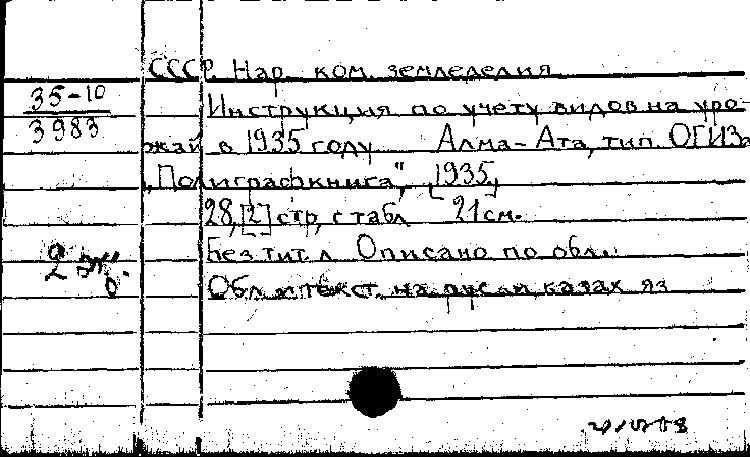 СССР. Нар. ком. земледелия
35-10
3983
Инструкция по учету видов на уро-
жай в 1935 году Алма-Ата, тип. ОГИЗа
„Полиграфкнига", [1935]
28, [2] стр, с табл 21 см.
Без тит л Описано по обл.
Обл. и текст. на русс и казах яз
2 эк.